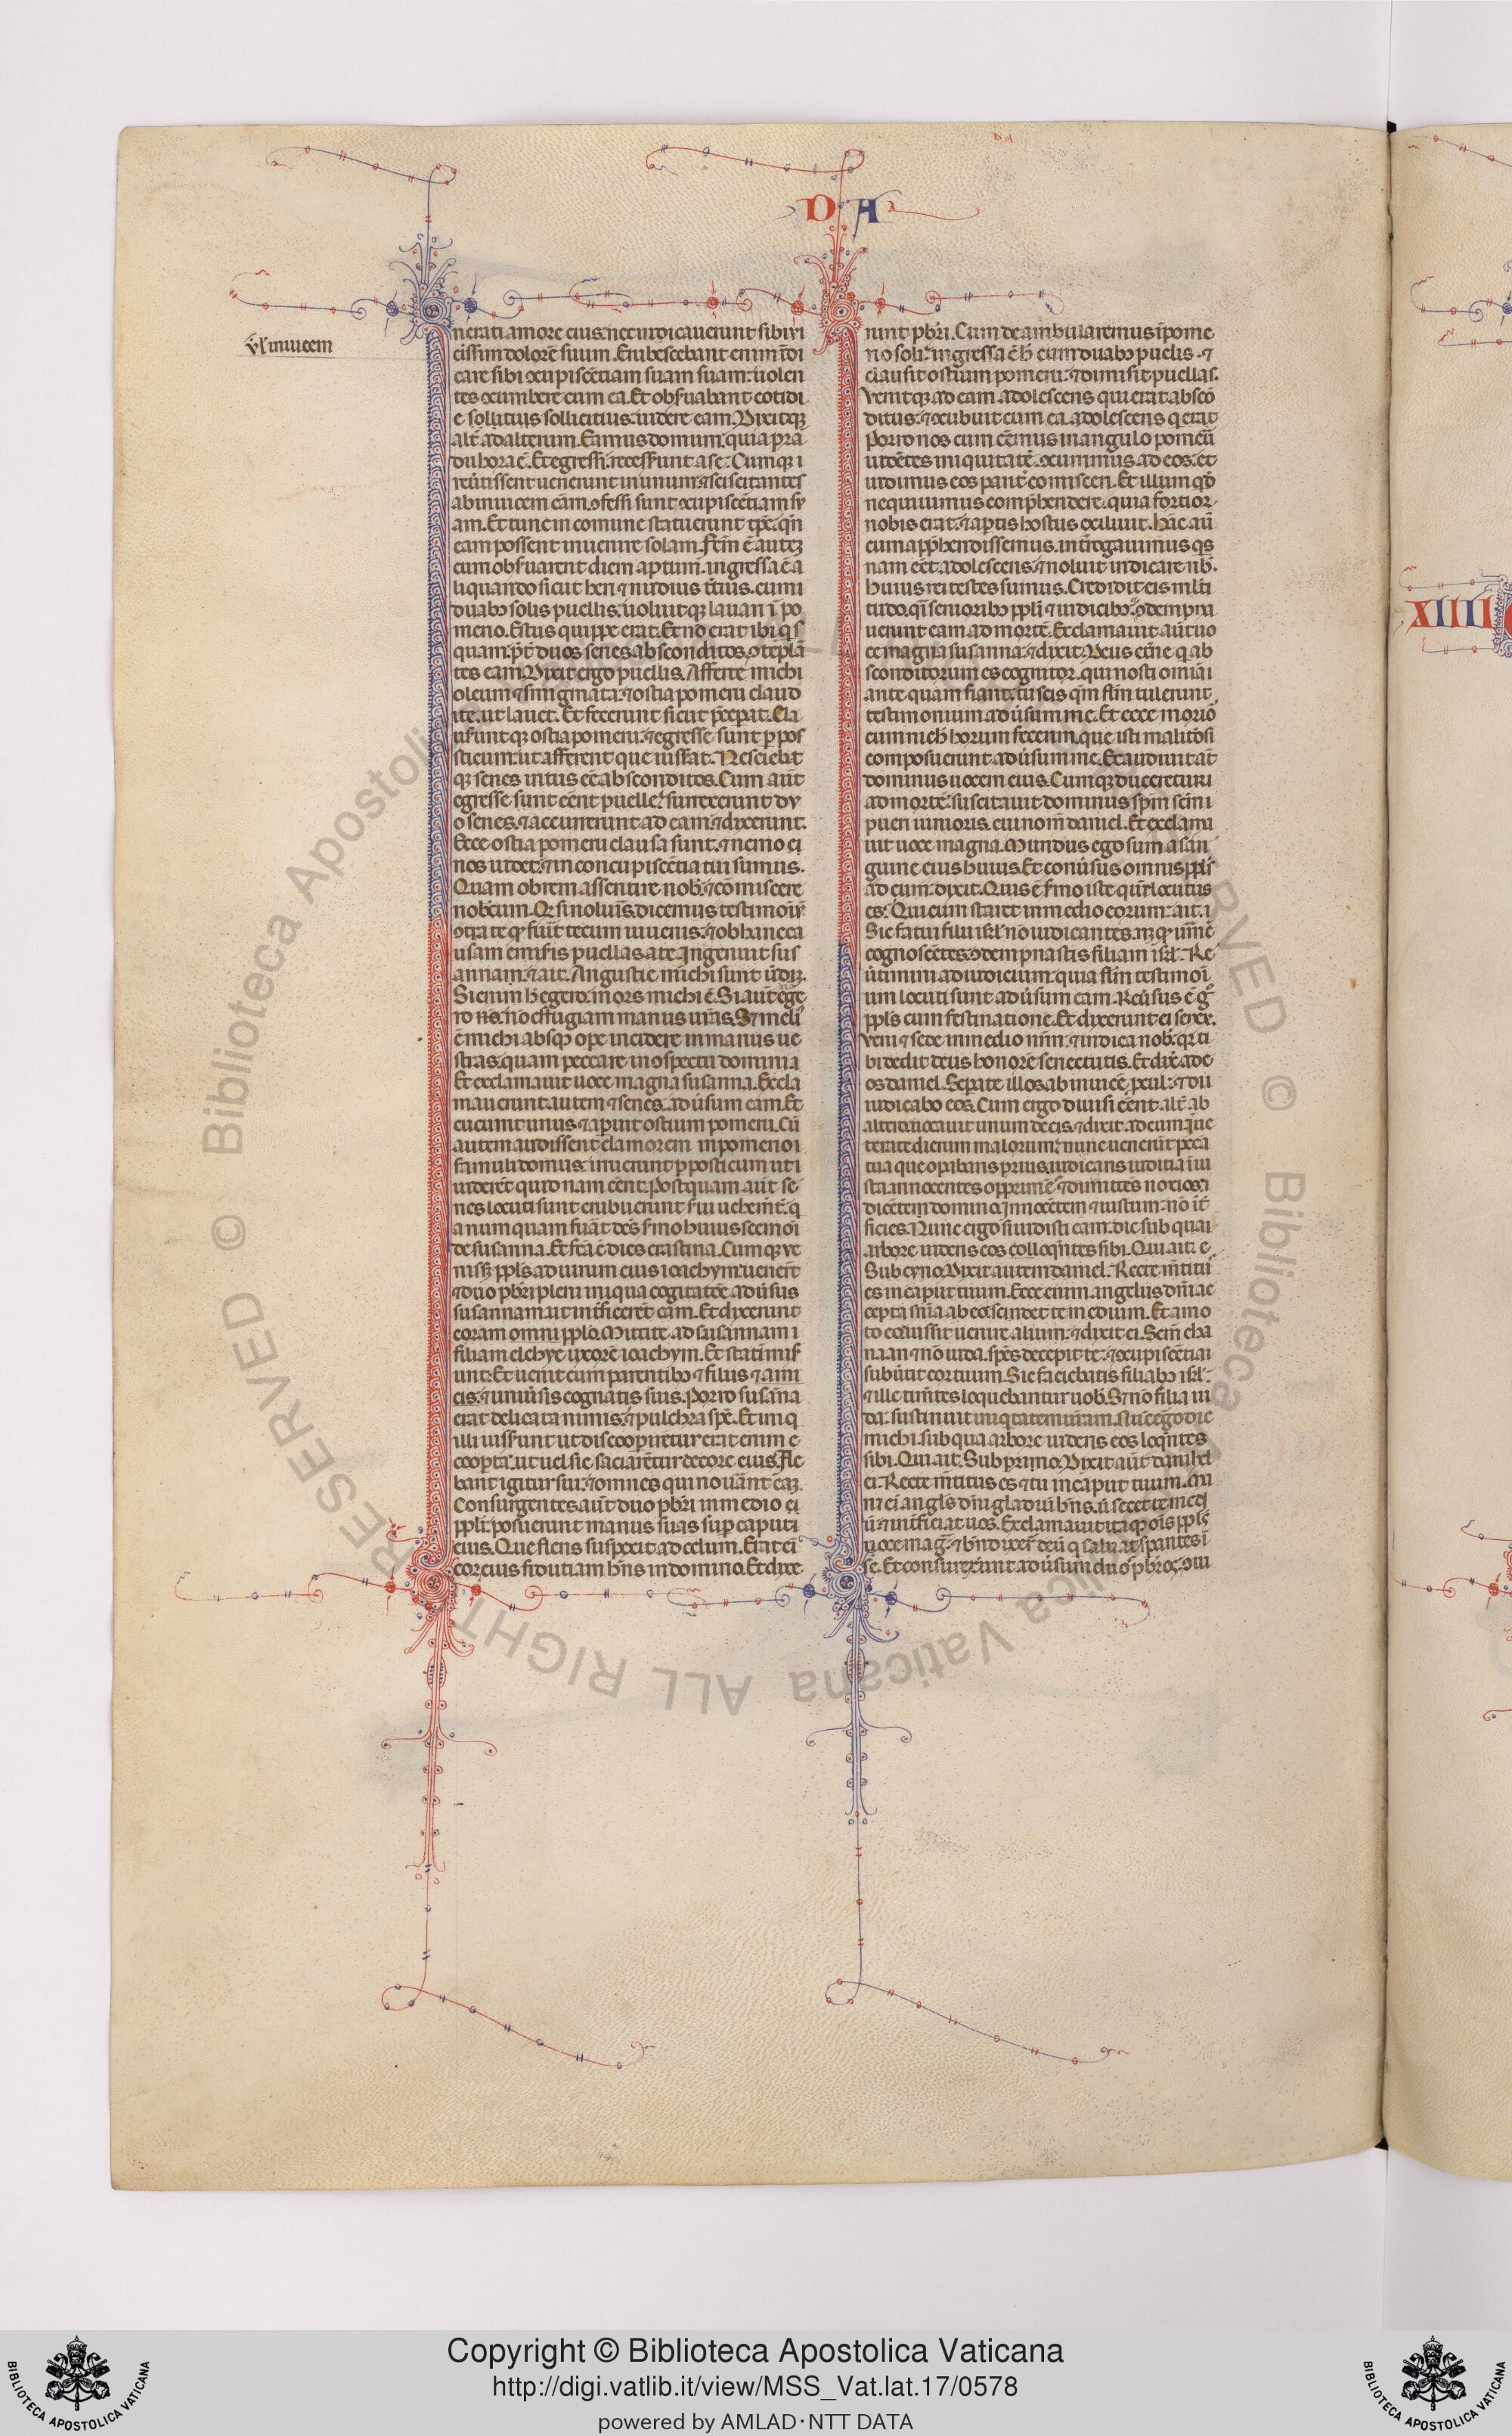 D A
ul' inuicem
nerati amore eius. nec indicauerunt sibi vi
cissim dolorē suum. Erubescebant enim īdi
care sibi ꝯcupiscētiam suam suam: uolen
tes ꝯcumbere cum ea. Et obseruabant cotidi
e sollicitius uidere eam. Dixitqꝫ
alt̄ ad alterum. Eamus domum. quia prā
dii hora ē. Et egressi recesserunt a se. Cumqꝫ
reuertissent uenerunt in unum: ⁊ sciscitantes
ab inuicem cām. ꝯfessi sunt ꝯcupiscētiam su
am. Et tunc in comune statuerunt tp̄c. qn̄
eam possent inuenire solam. Fcm̄ ē autez
cum obseruarent diem aptum. ingressa ē a
liquando sicut heri ⁊ nudius t̄tius. cum
duabꝫ solis puellis. uoluitqꝫ lauari ī po
merio. Estus quippe erat. Et nō erat ibi qs
quam. p̄t duos senes absconditos. ꝯtēplā
tes eam. Dixit ergo puellis. Afferte michi
oleum ⁊ smigmata: ⁊ ostia pomerii claud
ite. ut lauer. Et fecerunt sicut p̄ceperat. Cla
userunt qꝫ ostia pomerii. ⁊ egresse sunt per pos
ticum. ut afferrent que iusserat. Nesciebāt
qꝫ senes intus eē absconditos. Cum aūt
egresse sunt eēnt puelle: surrexerunt du
o senes. ⁊ accurrerunt ad eam: ⁊ dixerunt.
Ecce ostia pomerii clausa sunt. ⁊ nemo
nos uidet. ⁊ in concupiscētia tui sumus.
Quam obrem assentire nob. ⁊ comiscere
nobcum. Qꝫ si noluīs. dicemus testimoiū
ꝯtra te qꝫ fuit tecum iuuenis. ⁊ ob hanc ca
usam emiseris puellas a te. Ingemuit sus
anna. ⁊ ait. Angustie michi sunt undiqꝫ.
Si enim h egero. mors michi ē. Si aūt egē
ro nō. nō effugiam manus uras. S; meli
ē michi absqꝫ ope incidere in manus ue
stras. quam peccare in ꝯspectu domini.
Et exclamauit uoce magna susanna. Excla
mauerunt autem ⁊ senes. ad usum eam. Et
cucurrit unus. ⁊ aperuit ostium pomerii. Cū
autem audissent clamorem in pomerio
famuli domus. inruerunt per posticum ut
uiderēt quid nam eēnt. Postquam aūt se
nes locuti sunt erubuerunt serui uehemt̄. q
a numquam fuāt dcs̄ sermo huiuscemōi
de susanna. Et fcā ē dies crastina. Cumqꝫ ve
nisꝫ ppls̄ ad uirum eius ioachym. ueneēt
⁊ duo pbr̄i pleni iniqua cogitatōe adusus
susannam. ut int̄ficerēt eam. Et dixerunt
coram omni pplo. Mittite ad susannam
filiam elchye uxorē ioachym. Et statim mis
unt. Et uenit cum parentibꝫ ⁊ filiis ⁊ ami
cis. ⁊ uniūsis cognatis suis. Porro susanna
erat delicata nimis. ⁊ pulchra spē. Et iniq
illi iusserunt ut discoopiretur erat enim
coopta. ut uel sic saciarētur decore eius. Fle
bant igitur sui. ⁊ omnes qui nouāt eaz.
Consurgentes aūt duo pbr̄i in medio
ppli. posuerunt manus suas sup caput
eius. Que flens suspexit ad celum. Erat ei
cor eius fidutiam hn̄s in domino. Et dixe
runt pbr̄i. Cum deambularemus ī pome
rio soli: ingressa ē h cum duabꝫ puellis. ⁊
clausit ostium pomerii. ⁊ dimisit puellas.
venitqꝫ ad eam adolescens qui erat abscō
ditus: ⁊ ꝯcubuit cum ea adolescens q erat
Porro nos cum eēmus in angulo pomerii
uidētes iniquitatē. ꝯcurrimus ad eos. et
uidimus eos parit̄ comisceri. Et illum qdē
nequiuimus comp̄hendere. quia fortior
nobis erat. ⁊ aptis hostiis exiliuit. hāc aūt
cum app̄hendissemus. int̄rogauimus qs
nam eēt adolescens. ⁊ noluit indicare nb̄.
huius rei testes sumus. Credidit eis mlt̄i
tudo. qi senioribꝫ ppli ⁊ iudicibꝫ. ꝯdempna
uerunt eam ad mortē. Exclamauit aūt uo
ce magna susanna. ⁊ dixit. Deus et̄ne q ab
sconditorum es cognitor. qui nosti omīa
ante quam fiant. tu scis qm̄ flm̄ tulerunt
testimonium adūsum me. Et ecce morior
cum nich horum fecerim. que isti malitiosi
composuerunt adūsum me. Exaudiuit aūt
dominus uocem eius. Cumqꝫ duceretur
ad mortē. suscitauit dominus spm̄ scm̄
pueri iunioris. cui nom̄ daniel. Et exclama
uit uoce magna. Mundus ego sum a san
guine eius huius. Et conūsus omnis ppls̄
ad eum dixit. Quis ē sermo iste quē locutus
es. Qui cum staret in medio eorum. ait.
Sic fatui filii isrl̄. nō iudicantes. nꝫ qꝫ uerū ē
cognoscētes. ꝯdempnastis filiam isrl̄. Re
ūtimini ad iudicium: quia flm̄ testimoī
um locuti sunt adūsum eam. Reūsus ē g
ppls̄ cum festinatione. Et dixerunt ei senes.
veni ⁊ sede in medio nrm̄. ⁊ indica nob. qꝫ ti
bi dedit deus honorē senectutis. Et dix̄ ad e
os daniel. Separate illos ab inuicē pcul. ⁊ dii
iudicabo eos. Cum ergo diuisi eēnt alt̄ ab
alt̄o. uocauit unum de eis. ⁊ dixit ad eum. Īue
terate dierum malorum. nunc uenerūt pecca
tua que opabaris prius. iudicans iuditia iniu
sta. innocentes opprimēs. ⁊ dimittes noxios.
dicētem domino. Innocētem ⁊ iustum nō int̄
ficies. Nunc ergo si uidisti eam. dic sub qua
arbore uideris eos colloqn̄tes sibi. Qui ait.
Sub cyno. Dixit autem daniel. Recte m̄titu
es in caput tuum. Ecce enim angelus dn̄i ac
cepta sn̄ia ab eo. scindet te medium. Et amo
to eo. iussit uenire alium. ⁊ dixit ei. Sem̄ cha
naan ⁊ nō iuda. spēs decepit te. ⁊ ꝯcupiscētia
subūtit cor tuum. Sic faciebatis filiabꝫ isrl̄.
⁊ ille tim̄tes loquebantur uob. S; nō filia iu
da. sustinuit iniqtatem uram. Nūc ergo dic
michi. sub qua arbore uideris eos loqn̄tes
sibi. Qui ait. Sub prino. Dixit aūt danihel
ei. Recte m̄titus es ⁊ tu in caput tuum. Ma
net ei angls̄ dn̄i gladiū hn̄s. ut secet te medi
ū ⁊ int̄ficiat uos. Exclamauit itaqꝫ ois ppls̄
uoce mag. ⁊ bn̄dixer̄ deū q saluat spantes ī
se. Et consurrexerunt adūsum duos pbr̄os. ꝯui
XIIII
Copyright © Biblioteca Apostolica Vaticana
http://digi.vatlib.it/view/MSS_Vat.lat.17/0578
powered by AMLAD·NTT DATA
BIBLIOTECA APOSTOLICA VATICANA
BIBLIOTECA APOSTOLICA VATICANA
© Biblioteca Apostolica Vaticana ALL RIGHTS RESERVED